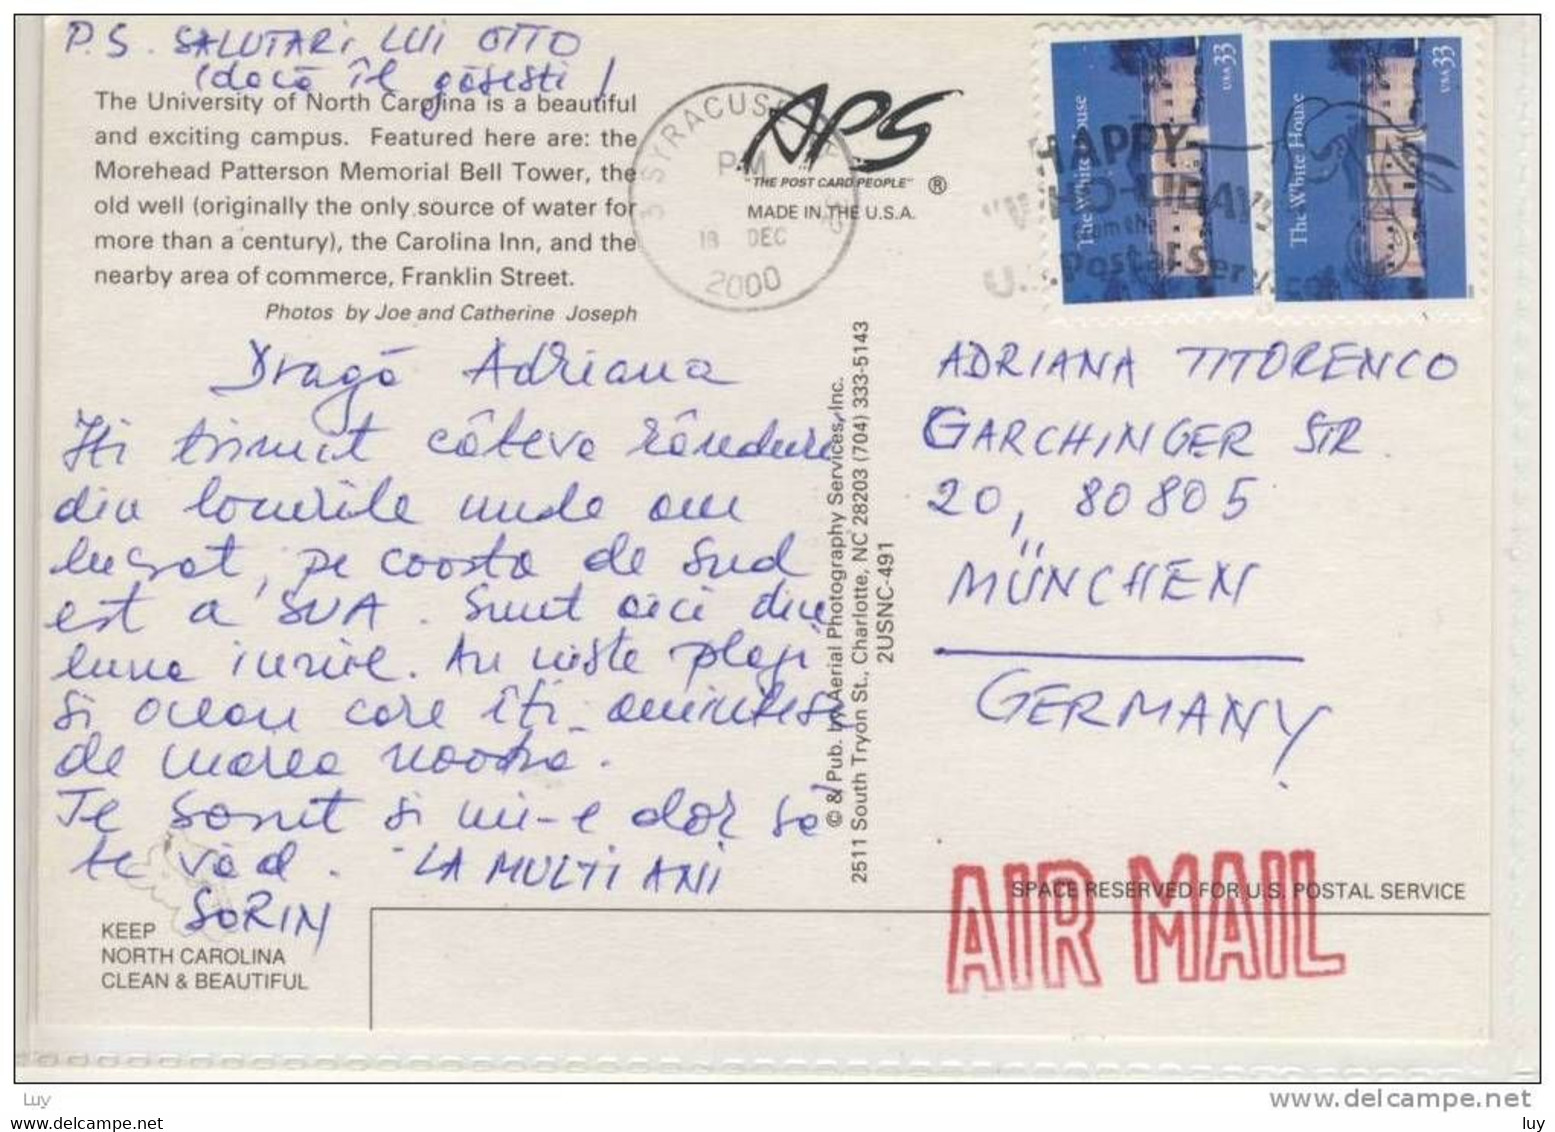 P.S. SALUTARI LUI OTTO
(dacă îl găsesti!
The University of North Carolina is a beautiful
and exciting campus. Featured here are: the
Morehead Patterson Memorial Bell Tower, the
old well (originally the only source of water for
more than a century), the Carolina Inn, and the
nearby area of commerce, Franklin Street.
Photos by Joe and Catherine Joseph
Dragă Adriana
Iti trimit câteva rânduri
din locurile unde am
lucrat, pe coasta de sud
est a SUA. Sunt aici din
luna iunie. Au niste plaji
si ocean care îti amintesc
de marea noastra.
Te sarut si mi-e dor să
te văd. LA MULTI ANI
SORIN
KEEP
NORTH CAROLINA
CLEAN & BEAUTIFUL
SYRACUSE
PM
18 DEC
2000
APS
"THE POST CARD PEOPLE" ®
MADE IN THE U.S.A.
© & Pub. by Aerial Photography Services, Inc.
2511 South Tryon St., Charlotte, NC 28203 (704) 333-5143
2USNC-491
The White House
USA 33
The White House
USA 33
HAPPY
"WHO-LIDAYS"
from the
U.S. Postal Service
ADRIANA TITORENCO
GARCHINGER STR.
20, 80805
MÜNCHEN
GERMANY
SPACE RESERVED FOR U.S. POSTAL SERVICE
AIR MAIL
www.delcampe.net
Luy
www.delcampe.net
luy